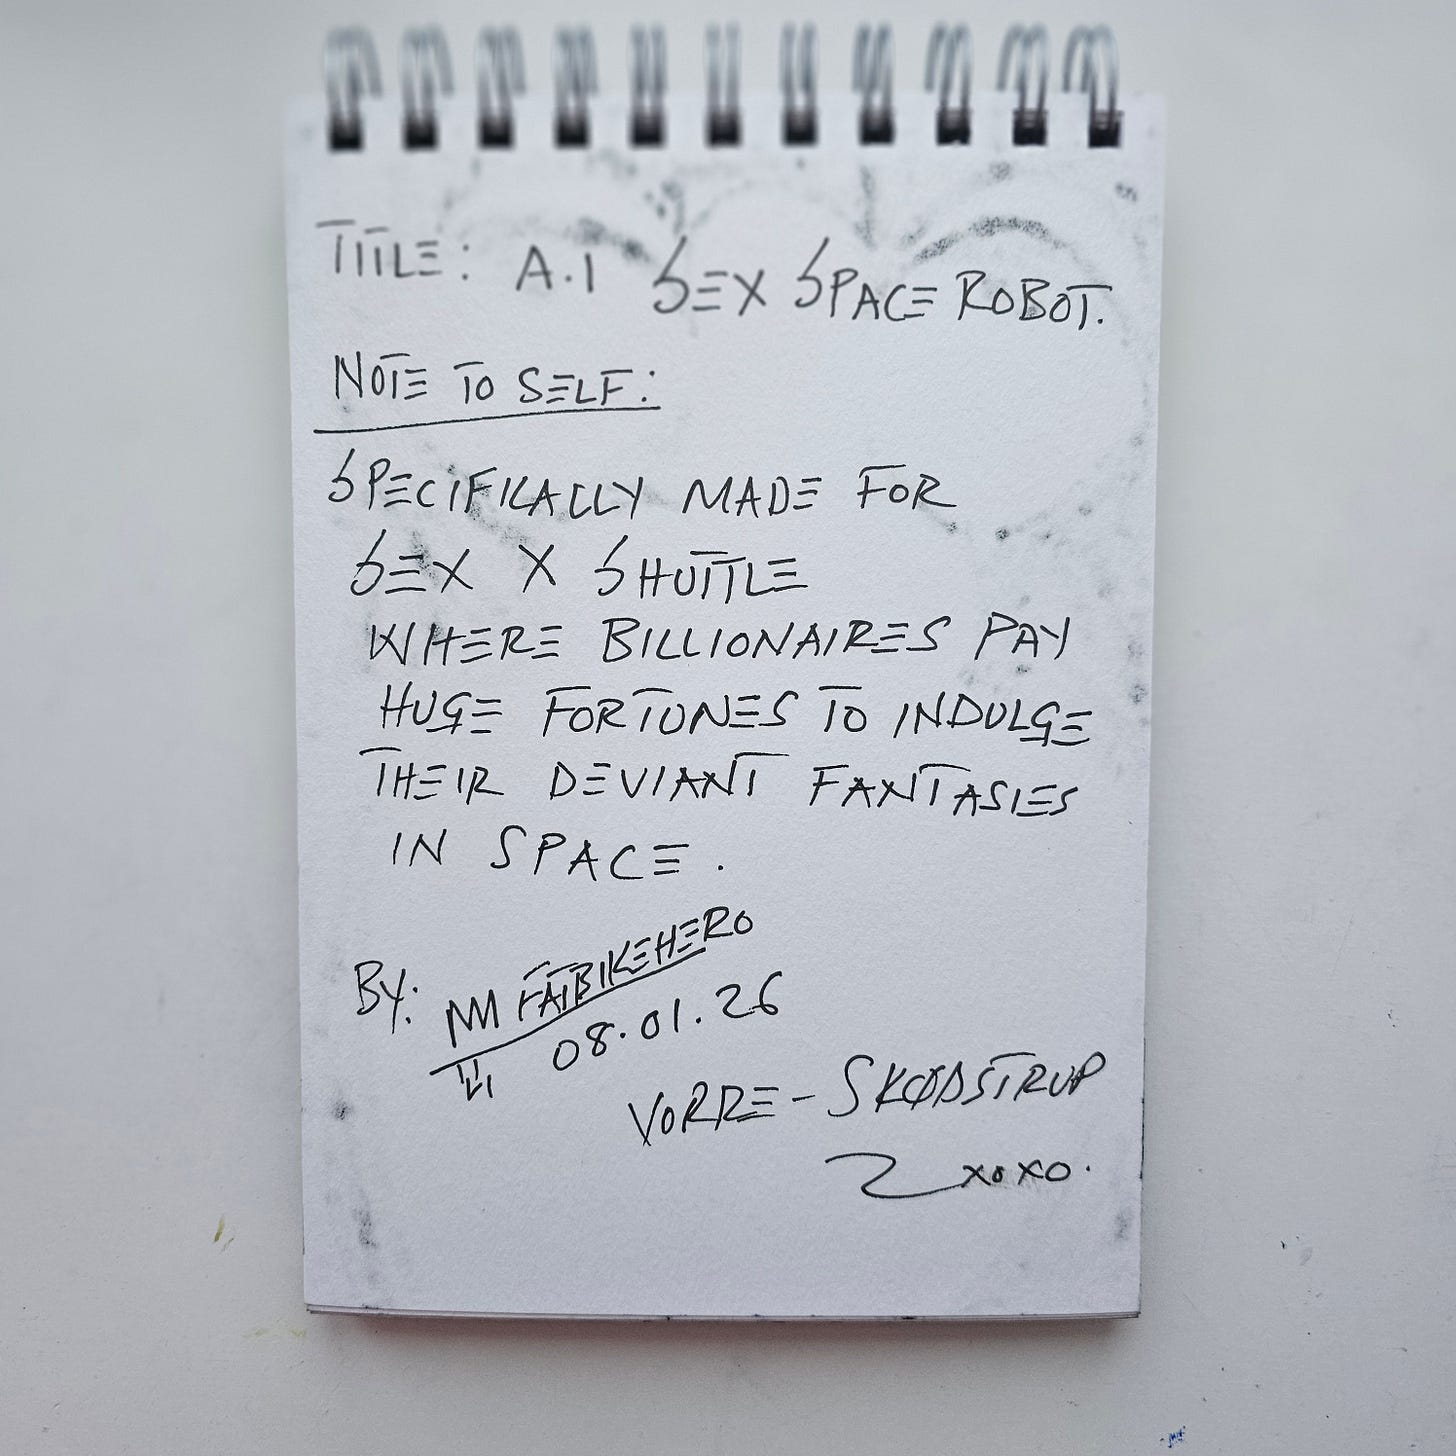 TITLE: A.I SEX SPACE ROBOT.
NOTE TO SELF:
SPECIFICALLY MADE FOR
SEX X SHUTTLE
WHERE BILLIONAIRES PAY
HUGE FORTUNES TO INDULGE
THEIR DEVIANT FANTASIES
IN SPACE.
BY: FATBIKEHERO
08.01.26
VORRE-SKØDSTRUP
XOXO.